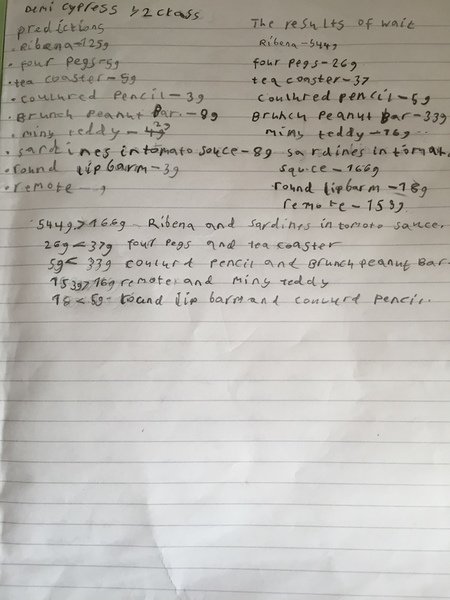 Demi Cypress y2 class
predictions
The results of wait
. Ribena - 125g
Ribena - 544g
. four Pegs - 5g
four Pegs - 26g
. tea coaster - 5g
tea coaster - 37
. coulured Pencil - 3g
coulured pencil - 5g
. Brunch Peanut Bar. - 8g
Brunch Peanut Bar - 33g
. miny teddy -
miny teddy - 16g
. sardines in tomato sauce - 8g
sardines in tomat.
sauce - 166g
. round lip barm - 3g
round lip barm - 18g
. remote - g
remote - 153g.
544g > 166g - Ribena and sardines in tomato sauce.
26g < 37g four Pegs and tea coaster
5g < 33g coulurd Pencil and Brunch peanut Bar.
153g > 16g remote and miny teddy
18 < 5g - round lip barm and coulurd Pencil.